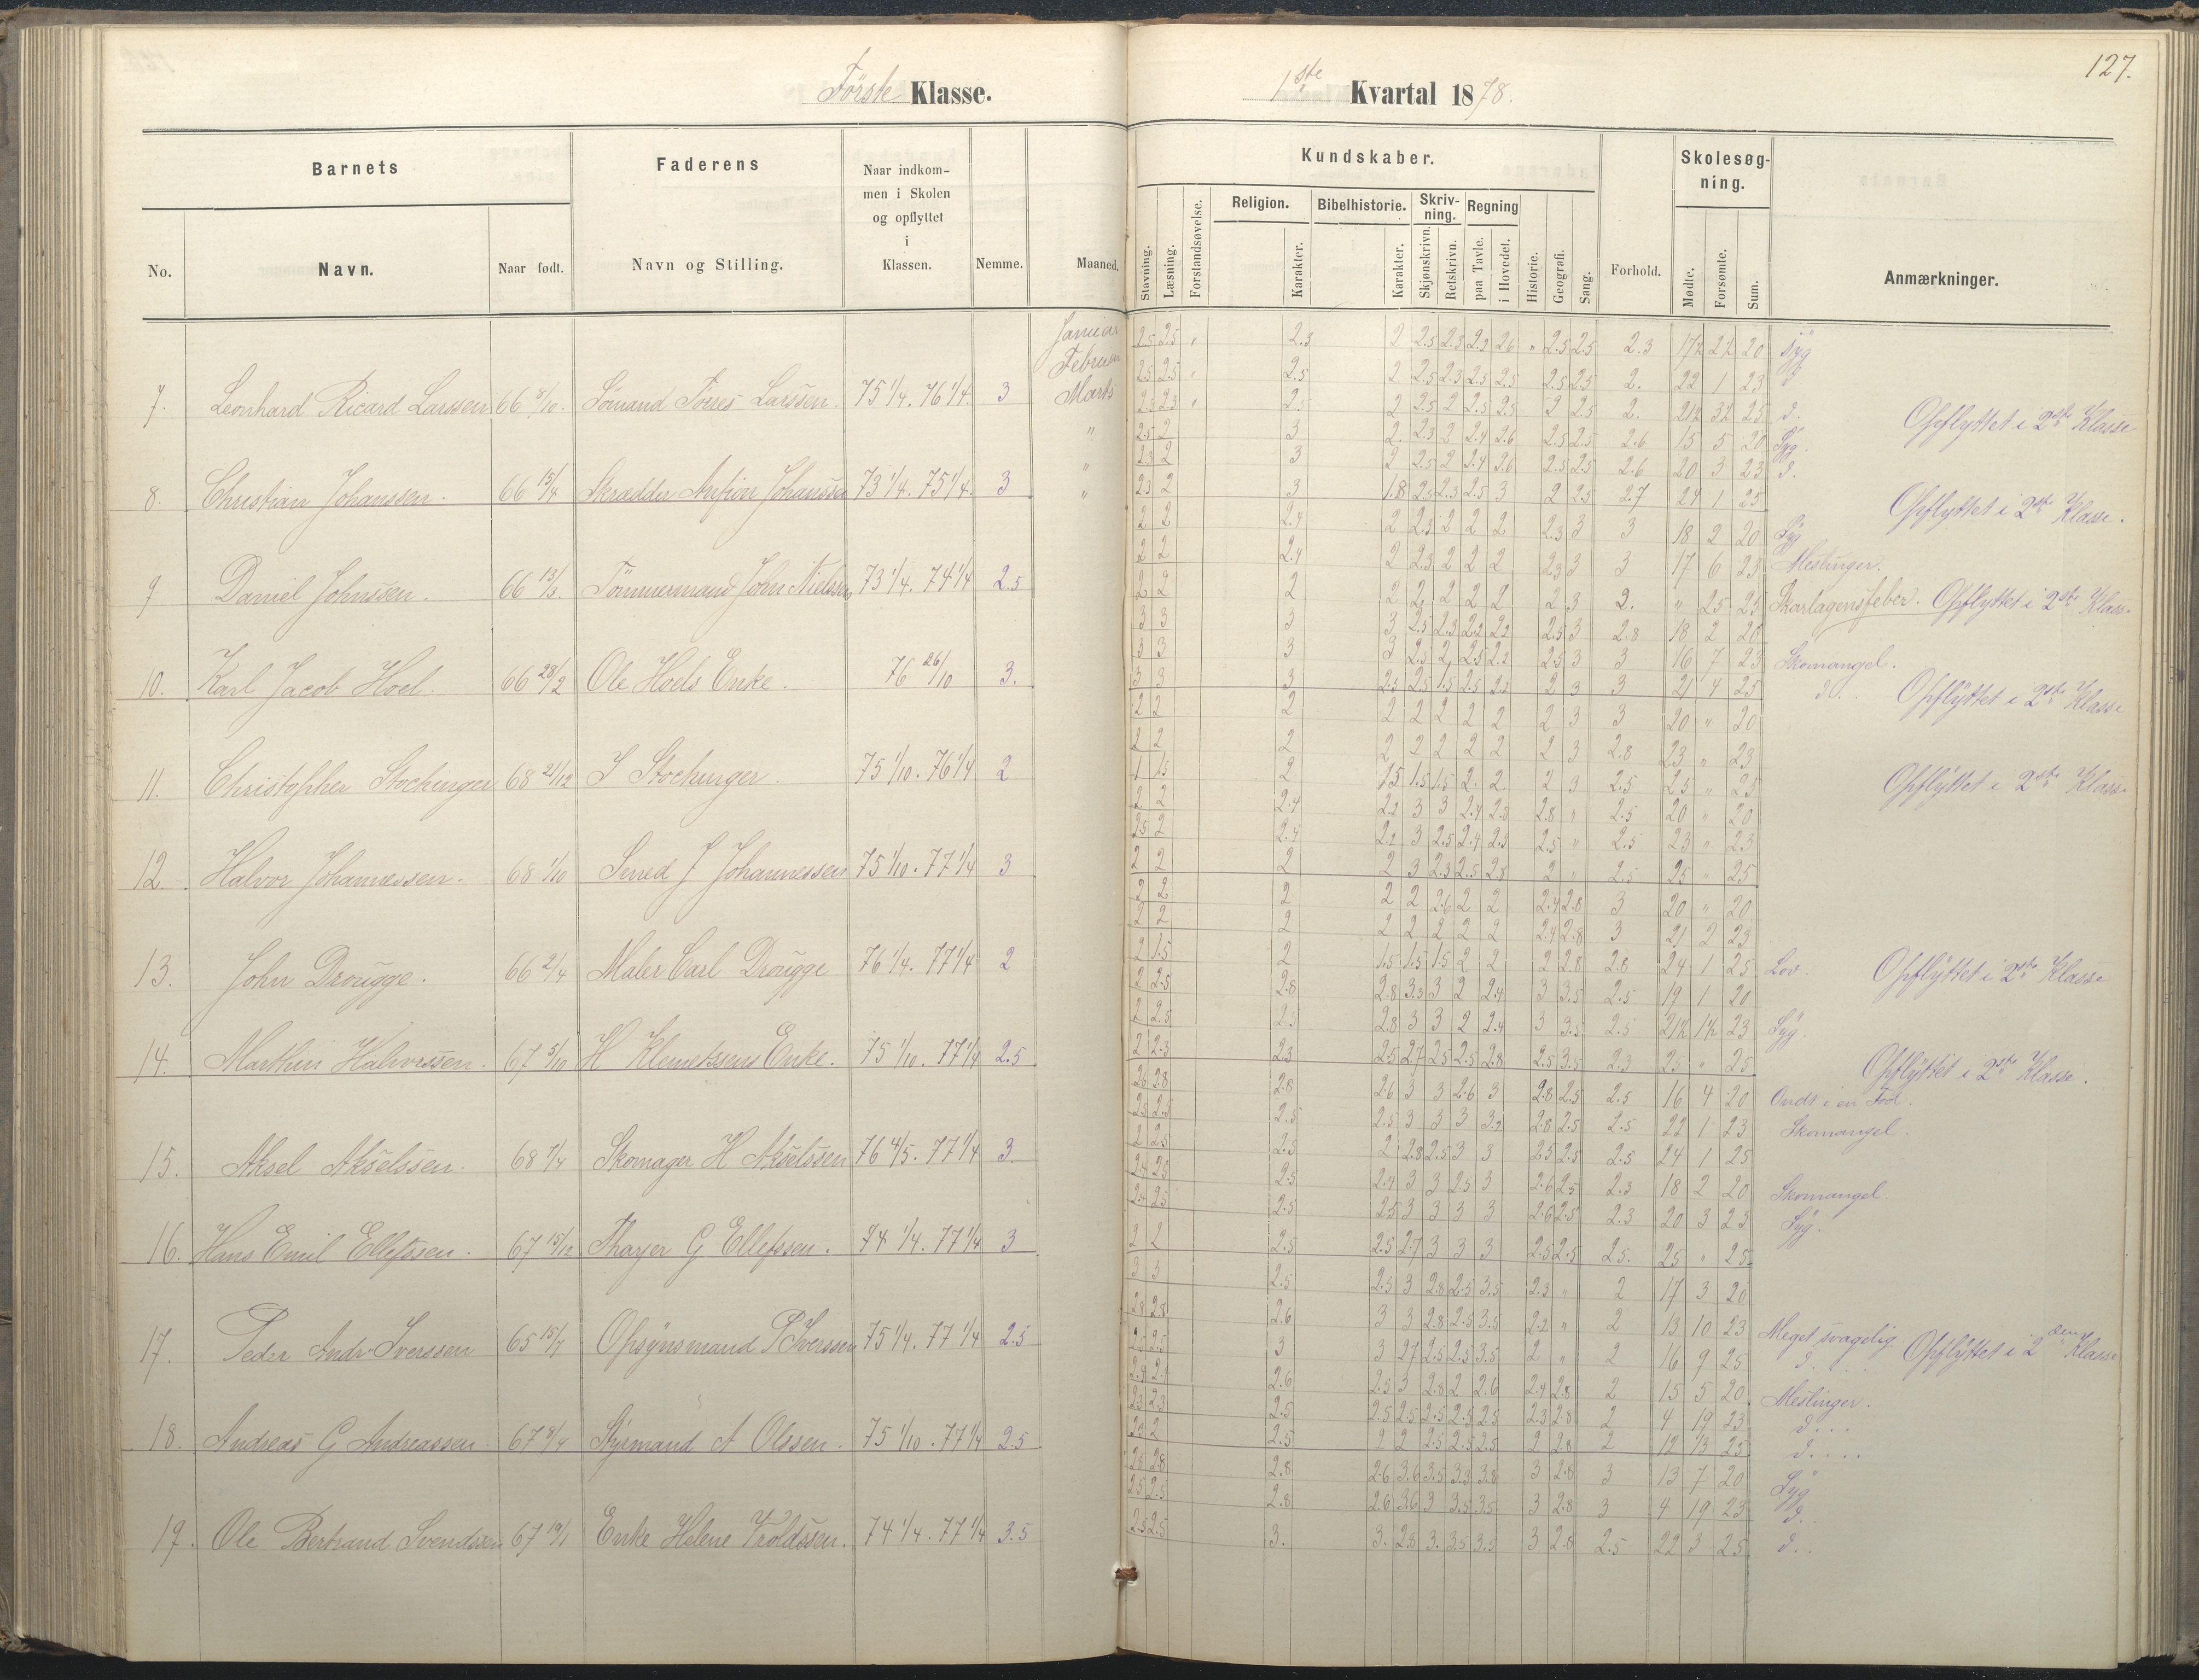 127.
Første Klasse.
1ste Kvartal 1878.
Barnets
Faderens
Naar indkommen i Skolen og opflyttet i Klassen.
Nemme.
Maaned.
Kundskaber.
Forhold.
Skolesøgning.
Anmærkninger.
No.
Navn.
Naar født.
Navn og Stilling.
Stavning.
Læsning.
Forstandsøvelse.
Religion.
Karakter.
Bibelhistorie.
Karakter.
Skrivning.
Skjønskrivn.
Retskrivn.
Regning
paa Tavle.
i Hovedet.
Historie.
Geografi.
Sang.
Mødte.
Forsømte.
Sum.
Januar 2.5 2.5 " 2.3 2 2.5 2.3 2.2 2.6 " 2.5 2.5 2.3 17½ 2½ 20 Syg
Februar 2.5 2.5 " 2.5 2 2.5 2.3 2.5 2.5 2.5 2.5 2. 22 1 23 d
7. Leonhard Ricard Larssen 66 8/10. Sømand Torres Larssen. 75 1/4. 76 1/4. 3 Marts 2.5 2.3 " 2.5 2 2.5 2 2.5 2.5 2 2.5 2. 21½ 3½ 25 d. Opflyttet i 2den Klasse
" 2.5 2 3 2. 2.3 2 2.4 2.6 2.5 2.5 2.6 15 5 20 Syg.
" 2.3 2 3 2 2.5 2 2.4 2.6 2.5 2.5 2.6 20 3 23 d.
8. Christian Johanssen. 66 15/4 Skrædder Johanssen 73 1/4. 75 1/4. 3 " 2.3 2 3 1.8 2.5 2.3 2.5 3 2 2.5 2.7 24 1 25 Opflyttet i 2den Klasse.
2 2 2.4 2 2.3 2 2 2 2.3 3 3 18 2 20 Syg
2 2 2.4 2 2.3 2 2 2 2.3 3 3 17 6 23 Meslinger.
9 Daniel Johnssen. 66 13/3. Tømmermand John Nielssen 73 1/4. 74 1/4 2.5 2 2 2 2 2 2 2 2 2 3 2. " 25 25 Skarlagensfeber. Opflyttet i 2den Klasse
3 3 3 3 2.5 2.3 2.2 2.2 2.5 3 2.8 18 2 20
3 3 3 3 2.5 2 2.5 2.2 2.5 3 3 16 7 23 Skomangel.
10. Karl Jacob Hoel. 66 28/2 Ole Hoels Enke. 76 26/10 3. 3 3 3 2.5 2.5 1.5 2.5 2.5 2 3 3 21 4 25 d.. Opflyttet i 2den Klasse
2 2 2 2 2 2 2 2 2 3 3 20 " 20
2 2 2 2 2 2 2 2 2 3 2.8 23 " 23
11. Christopher Stochinger 68 21/12 J Stochinger. 75 1/10. 76 1/4 2 1 1.5 2 1.5 1.5 1.5 2. 2. 2 3 2.5 25 " 25 Opflyttet i 2den Klasse
2 2 2.4 2.2 3 3 2.4 2.8 2.8 " 2.5 20 " 20
2.5 2 2.4 2.2 3 2.5 2.4 2.5 2.5 " 2.5 23 " 23
12. Halvor Johannessen. 68 1/10 Smed J Johannessen 75 1/10. 77 1/4 3 2 2 2 2 3 2.3 2.5 2.8 2 " 2.5 25 " 25
2 2 2 2 2 2.6 2 2 2.4 2.8 3 20 " 20
2 2 2 2 2 2 2 2 2.4 2.8 3 21 2 23
13. John Drougge. 66 2/4 Maler Carl Drougge 76 1/4. 77 1/4 2 2 1.5 2 1.5 1.5 1.5 2 2 2 2.8 2.8 24 1 25 Lov. Opflyttet i 2den Klasse
2 2.5 2.8 2.8 3.3 3 2 2.4 3 3.5 2.5 19 1 20
2 2.5 2.5 2.8 3 3 2 2.4 3 3.5 2.5 21½ 1½ 23 Syg.
14. Marthin Halvorssen. 67 5/10 H Klemetsens Enke. 75 1/10. 77 1/4 2.5 2 2.3 2.3 2.5 2.7 2.5 2.5 2.8 2.5 3.5 2.3 25 " 25 Opflyttet i 2den Klasse.
2.6 2.8 2.8 2.6 3 3 2.6 3 2.8 2.5 2.5 16 4 20 Ondt i en Fod.
2.5 2.5 2.5 2.5 3 3 3 3.2 2.8 2.5 2.5 22 1 23 Skomangel.
15. Aksel Akselssen. 68 7/4 Skomager H Akselssen 76 4/5. 77 1/4 3. 2 2.5 2.5 2 2.8 2.5 3 3 2.5 2.5 2.5 24 1 25
2.4 2.5 2.5 2.4 3 3 2.5 3 2.6 2.5 2.3 18 2 20 Skomangel
2.4 2.5 2.5 2.5 3 3 3 3 2.6 2.5 2.3 20 3 23 Syg.
16. Hans Emil Ellefssen. 67 15/12 G Ellefssen. 74 1/4. 77 1/4 3 2 2 2.5 2.5 2.7 3 3 3 2.5 2.5 2.5. 25 " 25
3 3 2.5 2.5 3 2.8 2.5 3.5 2.3 " 2 17 3 20
2.8 2.8 2.6 3 3 2.8 2.5 3.5 2.2 " 2 13 10 23 Meget svagelig
17. Peder Andr. Iverssen 65 15/7 Opsynsmand P Iverssen 75 1/4. 77 1/4 2.5 2.5 2.5 3 3 2.7 2.5 2.5 3.5 2 " 2 16 9 25 d... Opflyttet i 2den Klasse
2.4 2.4 2.6 2.5 3 2.8 2 2.6 2.4 2.8 2 15 5 20 Meslinger.
2.3 2.3 2.5 2.5 2.5 2.5 2.5 2.5 2.3 2.8 2 4 19 23 d...
18. Andreas G Andreassen. 67 8/4 Styrmand A Olssen. 75 1/10. 77 1/4 2.5 2.2 2 2.5 2 2 2.5 2.5 2.5 2 2.8 2 12 13 25 d....
2.8 2.8 2.8 2.6 3.6 3.5 3.3 3.8 3 2.8 3 13 7 20 Syg
2.5 2.5 2.8 2.6 3.6 3 3.5 3.5 3 2.8 3 4 19 23 d..
19. Ole Bertrand Svendsen 67 19/1 Enke Helene Troldssen. 74 1/4. 77 1/4 3.5 2.5 2.5 3. 3. 2.8 3. 3.5 3.5 3. 2.8 2.5 22 3 25 d..